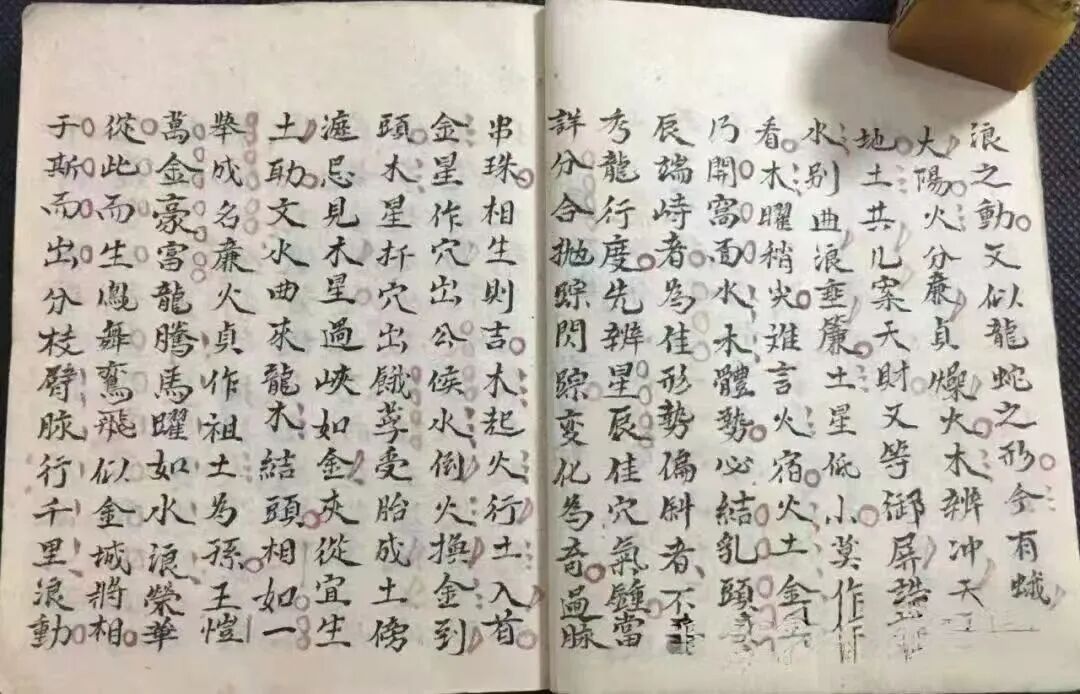 浪之動又似龍蛇之形今有蛾
大陽火分廉貞燥火木辨冲天
地土共儿案天財又等御屏誥
水别曲浪垂簾土星低小莫作
看木曜稍尖难言火宿火土金
乃開窩面水木體勢必結乳頭
辰端峙者為佳形勢偏斜者不
秀龍行度先辨星辰佳穴氣鍾當
詳分合抛踪閃踪变化為奇過脉
串珠相生則吉木起火行土入首
金星作穴出公侯水倒火換金到
頭木星扦穴出餓莩受胎成土傍
遮忌見木星過峽如金夾從宜生
土助文水曲來龍木結頭相如一
舉成名廉火貞作祖土為孫王愷
萬金豪富龍騰馬曜如水浪榮華
從此而生鳳舞鸞飛似金城將相
于斯而出分枝劈脉行千里浪動